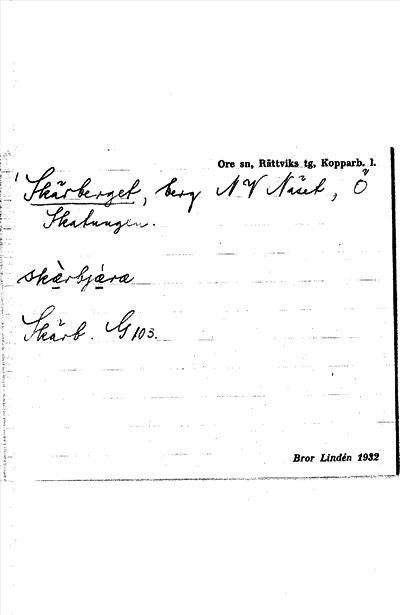 Ore sn, Rättviks tg, Kopparb. l.
Skärberget, berg NV Näset, Ö
Skatungen.
skæ̀rbjæ̀ra
Skärb. G 103.
Bror Lindén 1932